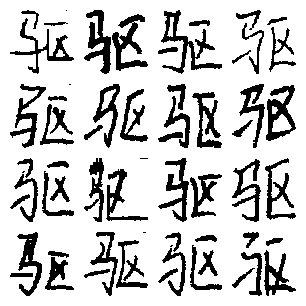 驱驱驱驱
驱驱驱驱
驱驱驱驱
驱驱驱驱